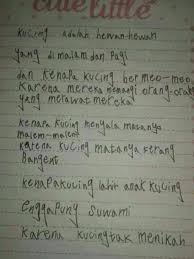 cute little
kucing adalah hewan-hewan
yang di malam dan Pagi
dan kenapa kucing ber meo-meo
karena mereka memagi orang-orang
yang merawat mereka
kenapa kucing menyala matanya
malem-malem
karena kucing matanya terang
Banget
kenapakucing lahir anak kucing
enggapuny suwami
karena kucingtak menikah